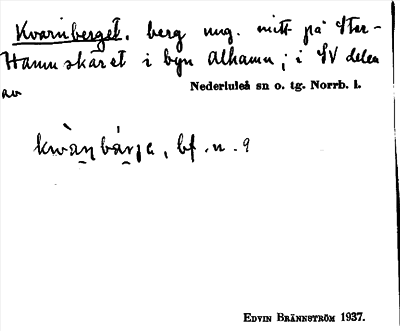 Kvarnberget. berg ung. mitt på Stor-
Hamnskäret i byn Alhamn; i SV delen
av Nederluleå sn o. tg. Norrb. l.
bf. n. 9
EDVIN BRÄNNSTRÖM 1937.